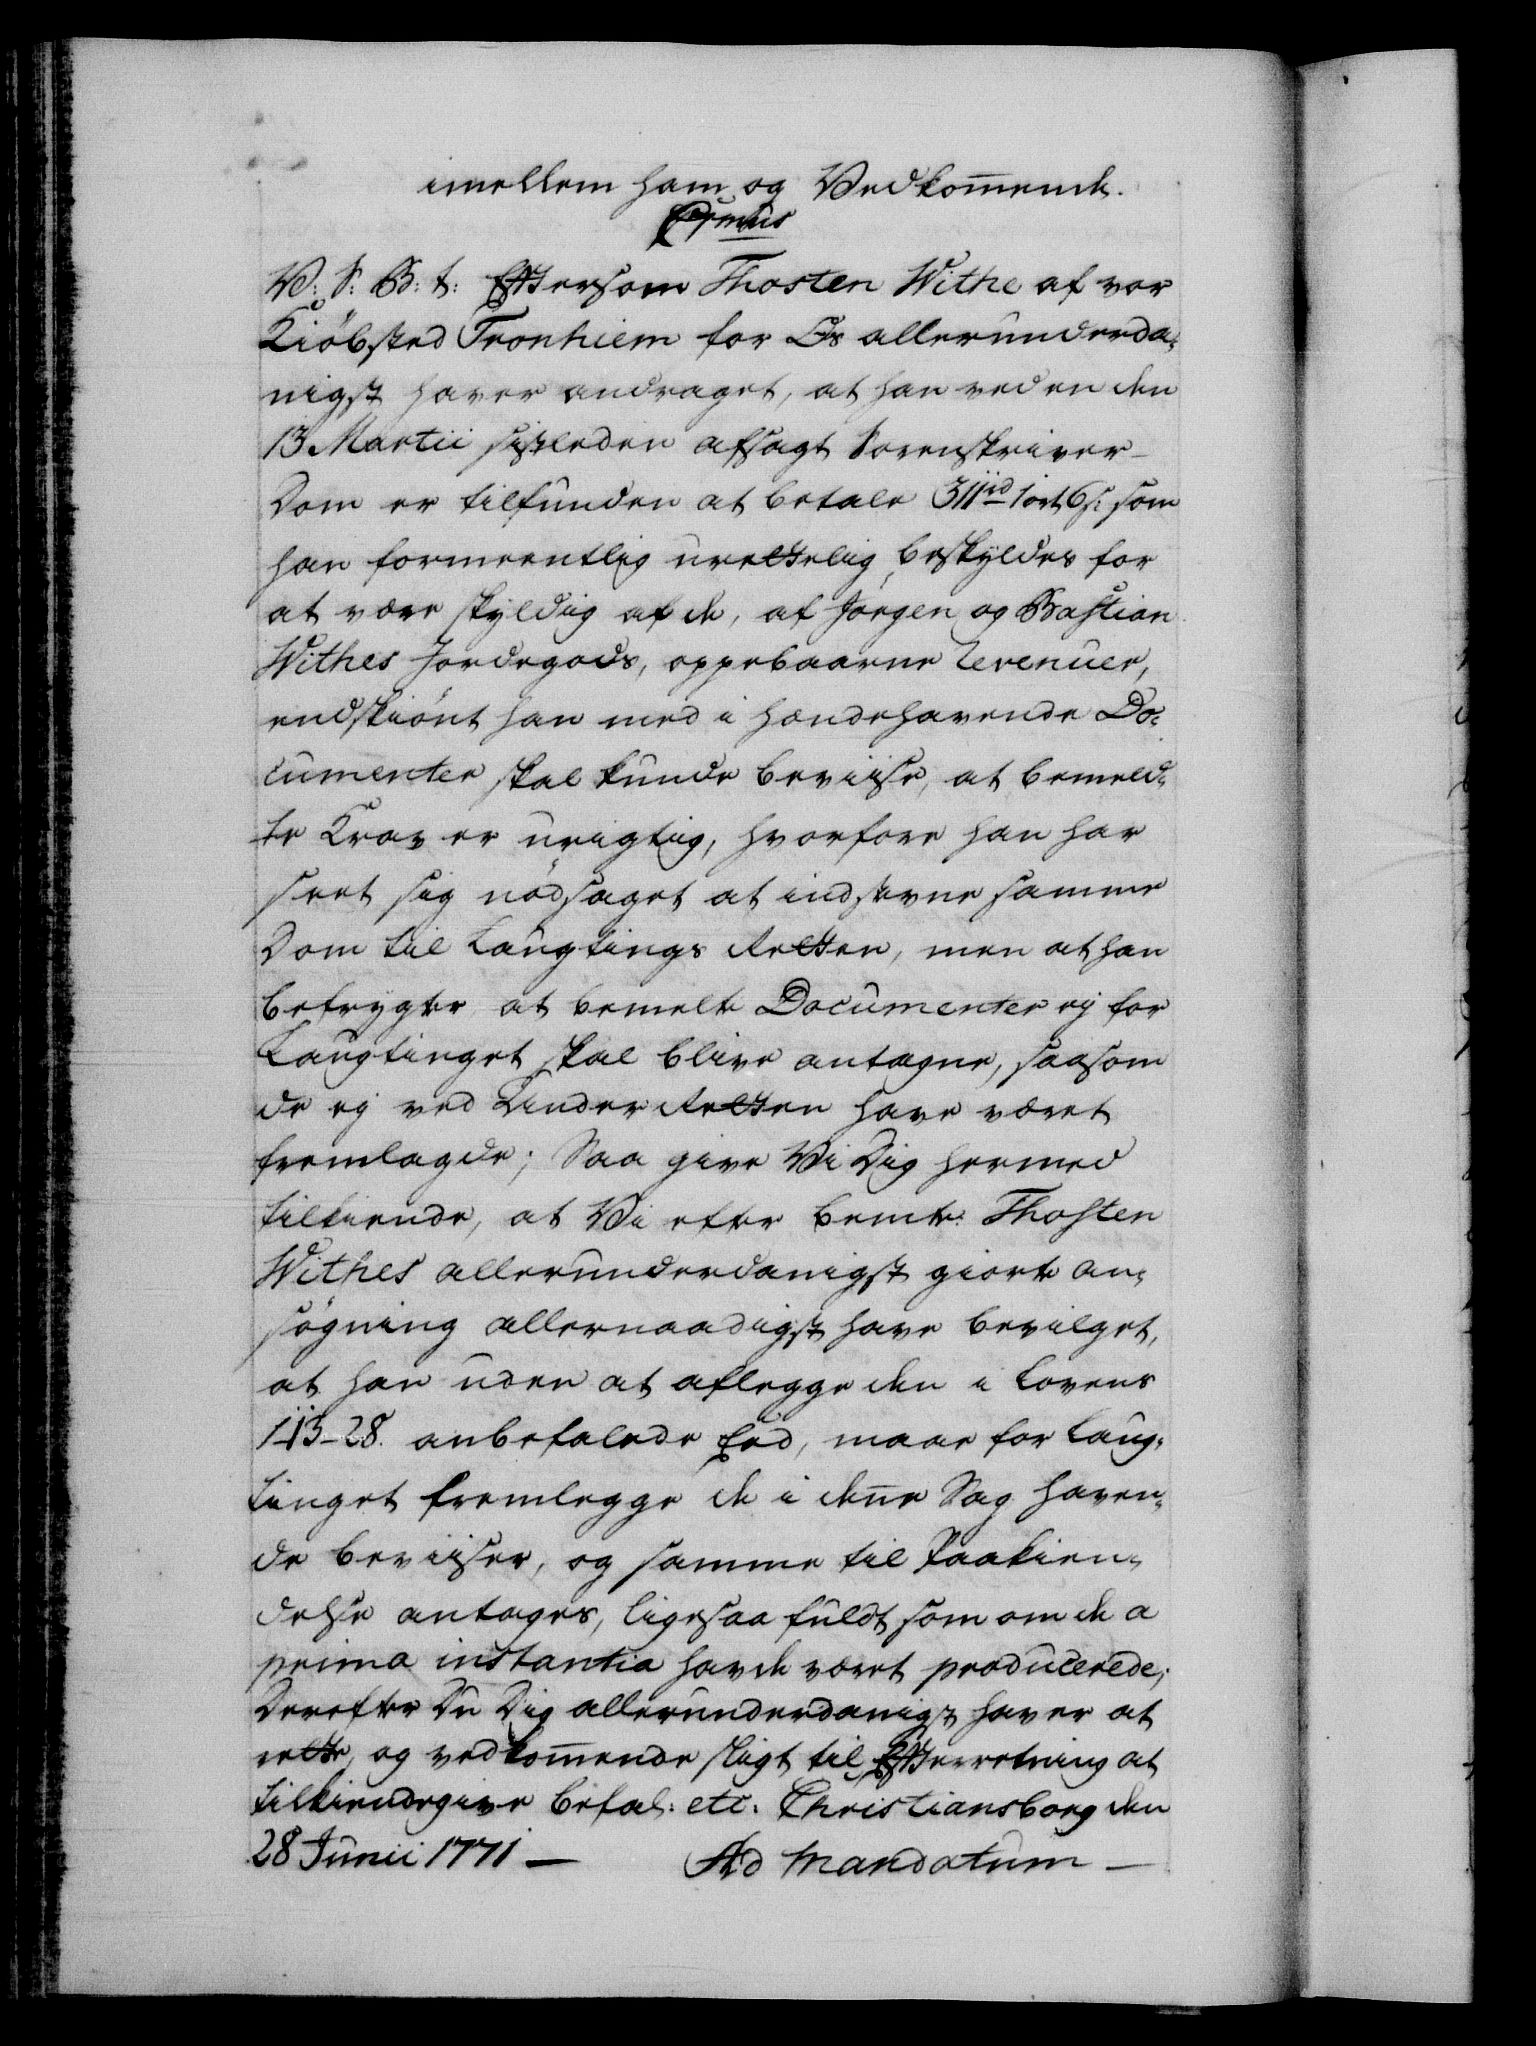 imellem ham og Vedkom̅ende.
V: S: G: t: Eftersom Thosten Withe af vor
Kiöbsted Tronhiem for Os allerunderda-
nigst haver andraget, at han ved en den
13 Martii sistleden afsagt Sorenskriver-
Dom er tilfunden at betale 311 rd 1 ort 6 s: som
han formeentlig urettelig beskyldes for
at være skyldig af de, af Jörgen og Bastian
Withes Jordegods, oppebaarne Revenuer,
endskiönt han med i hændehavende Do-
cumenter skal kunde beviise, at bemeld-
te Krav er urigtig, hvorfore han har
seet sig nödsaget at indstevne samme
Dom til Laugtings Retten, men at han
befrygter at bemelte Documenter ej for
Laugtinget skal blive antagne, saasom
de ej ved Under Retten have været
fremlagde; Saa give Vi Dig hermed
tilkiende, at Vi efter bemte: Thosten
Withes allerunderdanigst giorte an-
sögning allernaadigst have bevilget,
at han uden at aflegge den i Lovens
1-13-28. anbefalede Eed, maae for Laug-
tinget fremlegge de i den̅e Sag haven-
de beviiser, og samme til Paakien-
delse antages, ligesaa fuldt som om de a
prima instantia havde været producerede;
Derefter Du Dig allerunderdanigst haver at
rette, og vedkom̅ende sligt til Efterretning at
tilkiendegive Befal: etc. Christiansborg den
28 Junii 1771 —
Ad Mandatum —